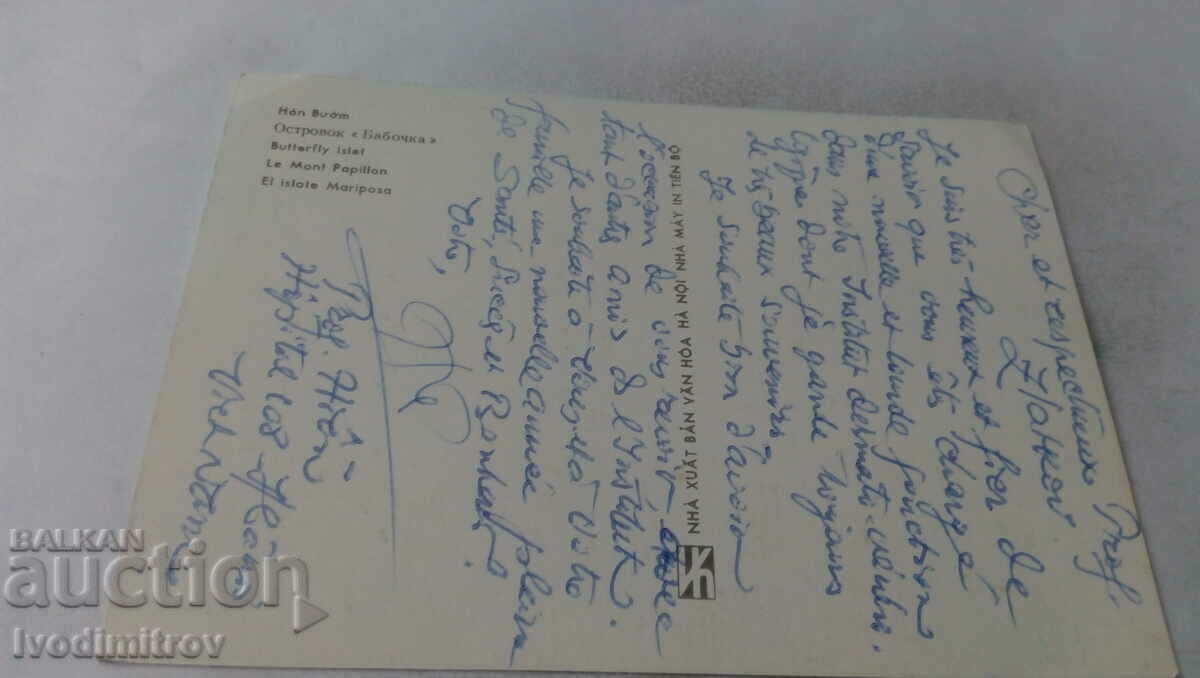 Hòn Bướm
Островок «Бабочка»
Butterfly Islet
Le Mont Papillon
El islote Mariposa
NHÀ XUẤT BẢN VĂN HÓA HÀ NỘI NHÀ MÁY IN TIẾN BỘ
Cher et respectueux Prof.
Zlatkov
Je suis très heureux et fier de
savoir que vous êtes chargé
d'une nouvelle et lourde fonction
dans notre Institut dermato-vénéro.
dont je garde toujours
de très beaux souvenirs.
Je souhaite d'avoir
l'occasion de vous revoir, avec
tant d'autres amis de l'Institut.
Je souhaite à vous et à votre
famille une nouvelle année pleine
de Santé, Succès et Bonheur.
Votre,
Prof. Hiển
Hôpital
Vietnam
BALKAN
auction
Ivodimitrov